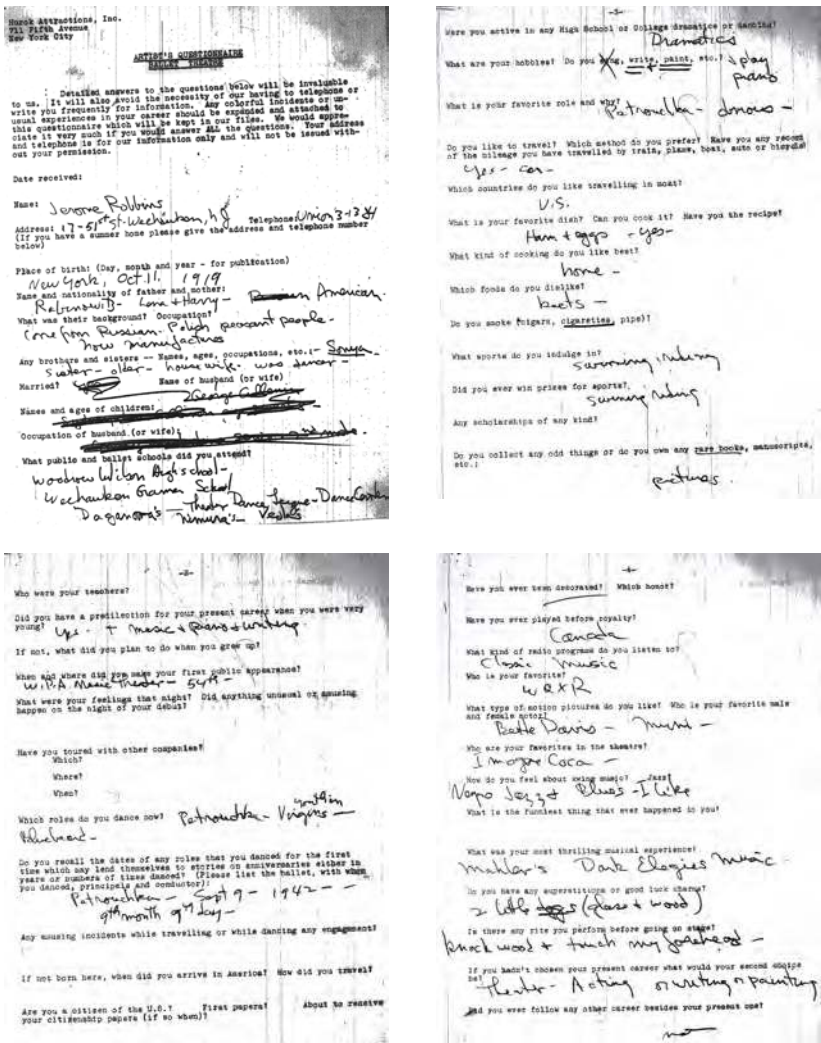 Hurok Attractions, Inc.
711 Fifth Avenue
New York City
ARTIST'S QUESTIONNAIRE
BALLET THEATRE
Detailed answers to the questions below will be invaluable
to us. It will also avoid the necessity of our having to telephone or
write you frequently for information. Any colorful incidents or un-
usual experiences in your career should be expanded and attached to
this questionnaire which will be kept in our files. We would appre-
ciate it very much if you would answer ALL the questions. Your address
and telephone is for our information only and will not be issued with-
out your permission.
Date received:
Name: Jerome Robbins
Address: 17-51st St. Weehawken, NJ Telephone: Union 3-1384
(If you have a summer home please give the address and telephone number
below)
Place of birth: (Day, month and year - for publication)
New York, Oct 11. 1919
Name and nationality of father and mother:
Rabinowitz - Lena + Harry - American.
What was their background? Occupation?
Come from Russian-Polish peasant people.
now manufactures
Any brothers and sisters -- Names, ages, occupations, etc.:- Sonya
sister - older - housewife. was dancer -
Married? Name of husband (or wife)
Names and ages of children:
Occupation of husband (or wife):
What public and ballet schools did you attend?
Woodrow Wilson High school -
Weehawken Grammar School
Daganova's - Theater Dance League - Dance Center
Nimura's - Veola's
-3-
Were you active in any High School or College dramatics or dancing?
Dramatics
What are your hobbies? Do you sing, write, paint, etc.? + play
piano
What is your favorite role and why?
Petrouchka - donows -
Do you like to travel? Which method do you prefer? Have you any record
of the mileage you have travelled by train, plane, boat, auto or bicycle?
Yes - car -
Which countries do you like travelling in most?
U.S.
What is your favorite dish? Can you cook it? Have you the recipe?
Ham + eggs - yes -
What kind of cooking do you like best?
home -
Which foods do you dislike?
beets -
Do you smoke (cigars, cigarettes, pipe)?
What sports do you indulge in?
swimming, riding
Did you ever win prizes for sports?
swimming riding
Any scholarships of any kind?
Do you collect any odd things or do you own any rare books, manuscripts,
etc.:
pictures.
-2-
Who were your teachers?
Did you have a predilection for your present career when you were very
young? Yes. + music + piano + writing.
If not, what did you plan to do when you grew up?
When and where did you make your first public appearance?
W.P.A. Music Theater - 54th -
What were your feelings that night? Did anything unusual or amusing
happen on the night of your debut?
Have you toured with other companies?
Which?
Where?
When?
Which roles do you dance now? Petrouchka - Virgins youth in
Bluebeard -
Do you recall the dates of any roles that you danced for the first
time which may lend themselves to stories on anniversaries either in
years or numbers of times danced? (Please list the ballet, with whom
you danced, principals and conductor):
Petrouchka - Sept 9 - 1942 - -
9th month 9th day -
Any amusing incidents while travelling or while dancing any engagement?
If not born here, when did you arrive in America? How did you travel?
Are you a citizen of the U.S.? First papers? About to receive
your citizenship papers (if so when)?
-4-
Have you ever been decorated? Which honor?
Have you ever played before royalty?
Canada
What kind of radio programs do you listen to?
Classic music
Who is your favorite?
WQXR
What type of motion pictures do you like? Who is your favorite male
and female actor?
Bette Davis - Muni -
Who are your favorites in the theatre?
Imogene Coca -
How do you feel about swing music? Jazz?
Negro Jazz + Blues - I like
What is the funniest thing that ever happened to you?
What was your most thrilling musical experience?
Mahler's Dark Elegies Music -
Do you have any superstitions or good luck charms?
2 little dogs (glass + wood)
Is there any rite you perform before going on stage?
knock wood + touch my forehead -
If you hadn't chosen your present career what would your second choice
be?
Theater - Acting or writing or painting
Did you ever follow any other career besides your present one?
not